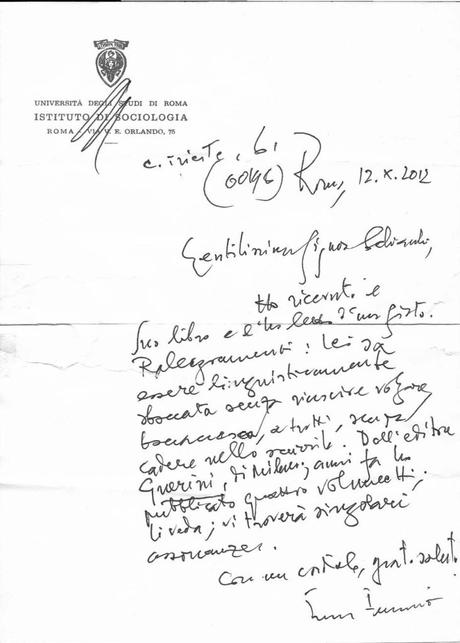 UNIVERSITÀ DEGLI STUDI DI ROMA
ISTITUTO DI SOCIOLOGIA
ROMA - VIA V. E. ORLANDO, 75
c. Trieste, 61
(00196) Roma, 12.X.2012
Gentilissima Signora
Ho ricevuto il
Suo libro e l'ho letto d'un fiato.
Rallegramenti! Lei sa
essere linguisticamente
sboccata senza riuscire volgare
boccaccesca, a tratti, senza
cadere nello scurrile. Dall'editore
Guerini, di Milano, anni fa ho
pubblicato quattro volumetti.
Li veda; vi troverà singolari
assonanze.
Con un cordiale, grato saluto.